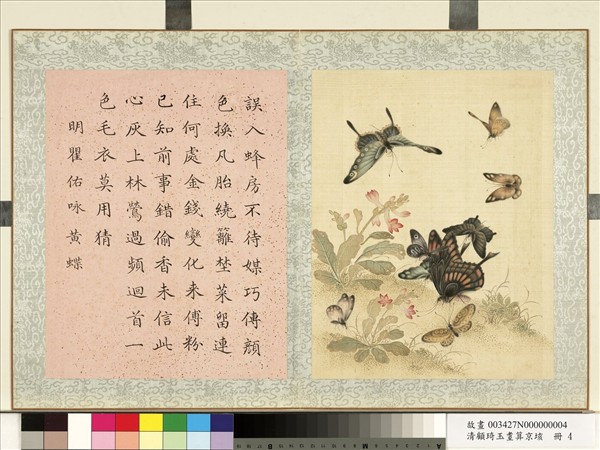 誤入蜂房不待媒巧傳顏
色換凡胎繞籬埜菜留連
住何處金錢變化來傅粉
已知前事錯偷香未信此
心灰上林鶯過頻迴首一
色毛衣莫用猜
明瞿佑咏黃蝶
故畫 003427N000000004
清顧琦玉畫算京垓 冊 4